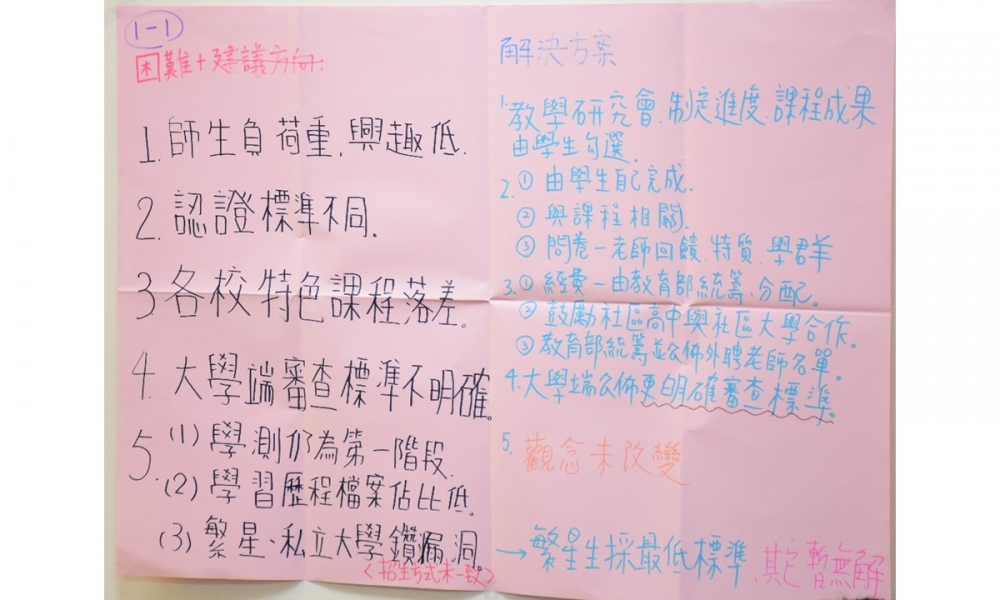 1-1
困難+建議方向:
1. 師生負荷重、興趣低.
2. 認證標準不同.
3 各校特色課程落差。
4. 大學端審查標準不明確。
5. (1) 學測仍為第一階段.
(2) 學習歷程檔案佔比低。
(3) 繁星、私立大學鑽漏洞。
<招生方式未一致>
解決方案
1. 教學研究會、制定進度、課程成果
由學生勾選.
2. ① 由學生自己完成.
② 與課程相關.
③ 問卷-老師回饋、特質、學群
3. ① 經費-由教育部統籌、分配。
② 鼓勵社區高中與社區大學合作。
③ 教育部統籌並公佈外聘老師名單。
4. 大學端公佈更明確審查標準。
5. 觀念未改變
→ 繁星生採最低標準
暫無解